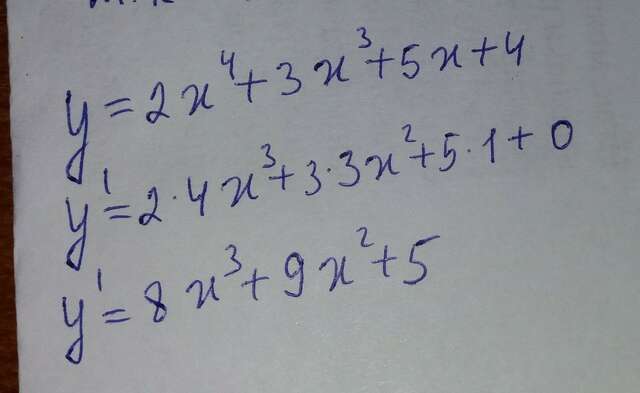 y = 2x⁴ + 3x³ + 5x + 4
y' = 2·4x³ + 3·3x² + 5·1 + 0
y' = 8x³ + 9x² + 5